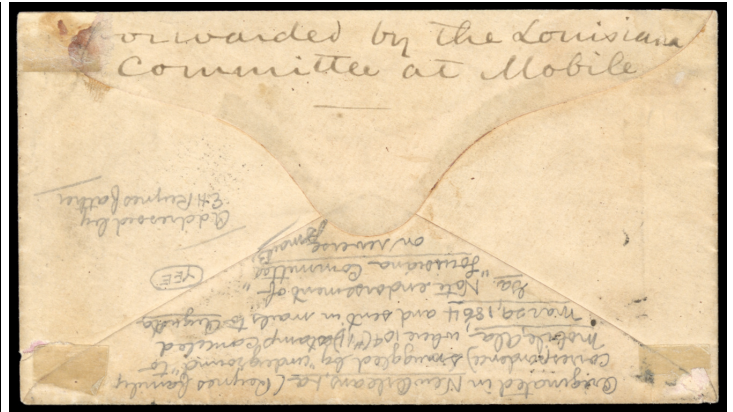 Forwarded by the Louisiana
Committee at Mobile
Addressed by
E.H. Reynes father
Originated in New Orleans, La (Reynes family
correspondence) smuggled by "underground" to
Mobile, Ala, where 10¢ stamp canceled
Mar 29, 1864 and sent in mails to Augusta
Ga. Note endorsement of
"Louisiana Committee"
on reverse
YEE